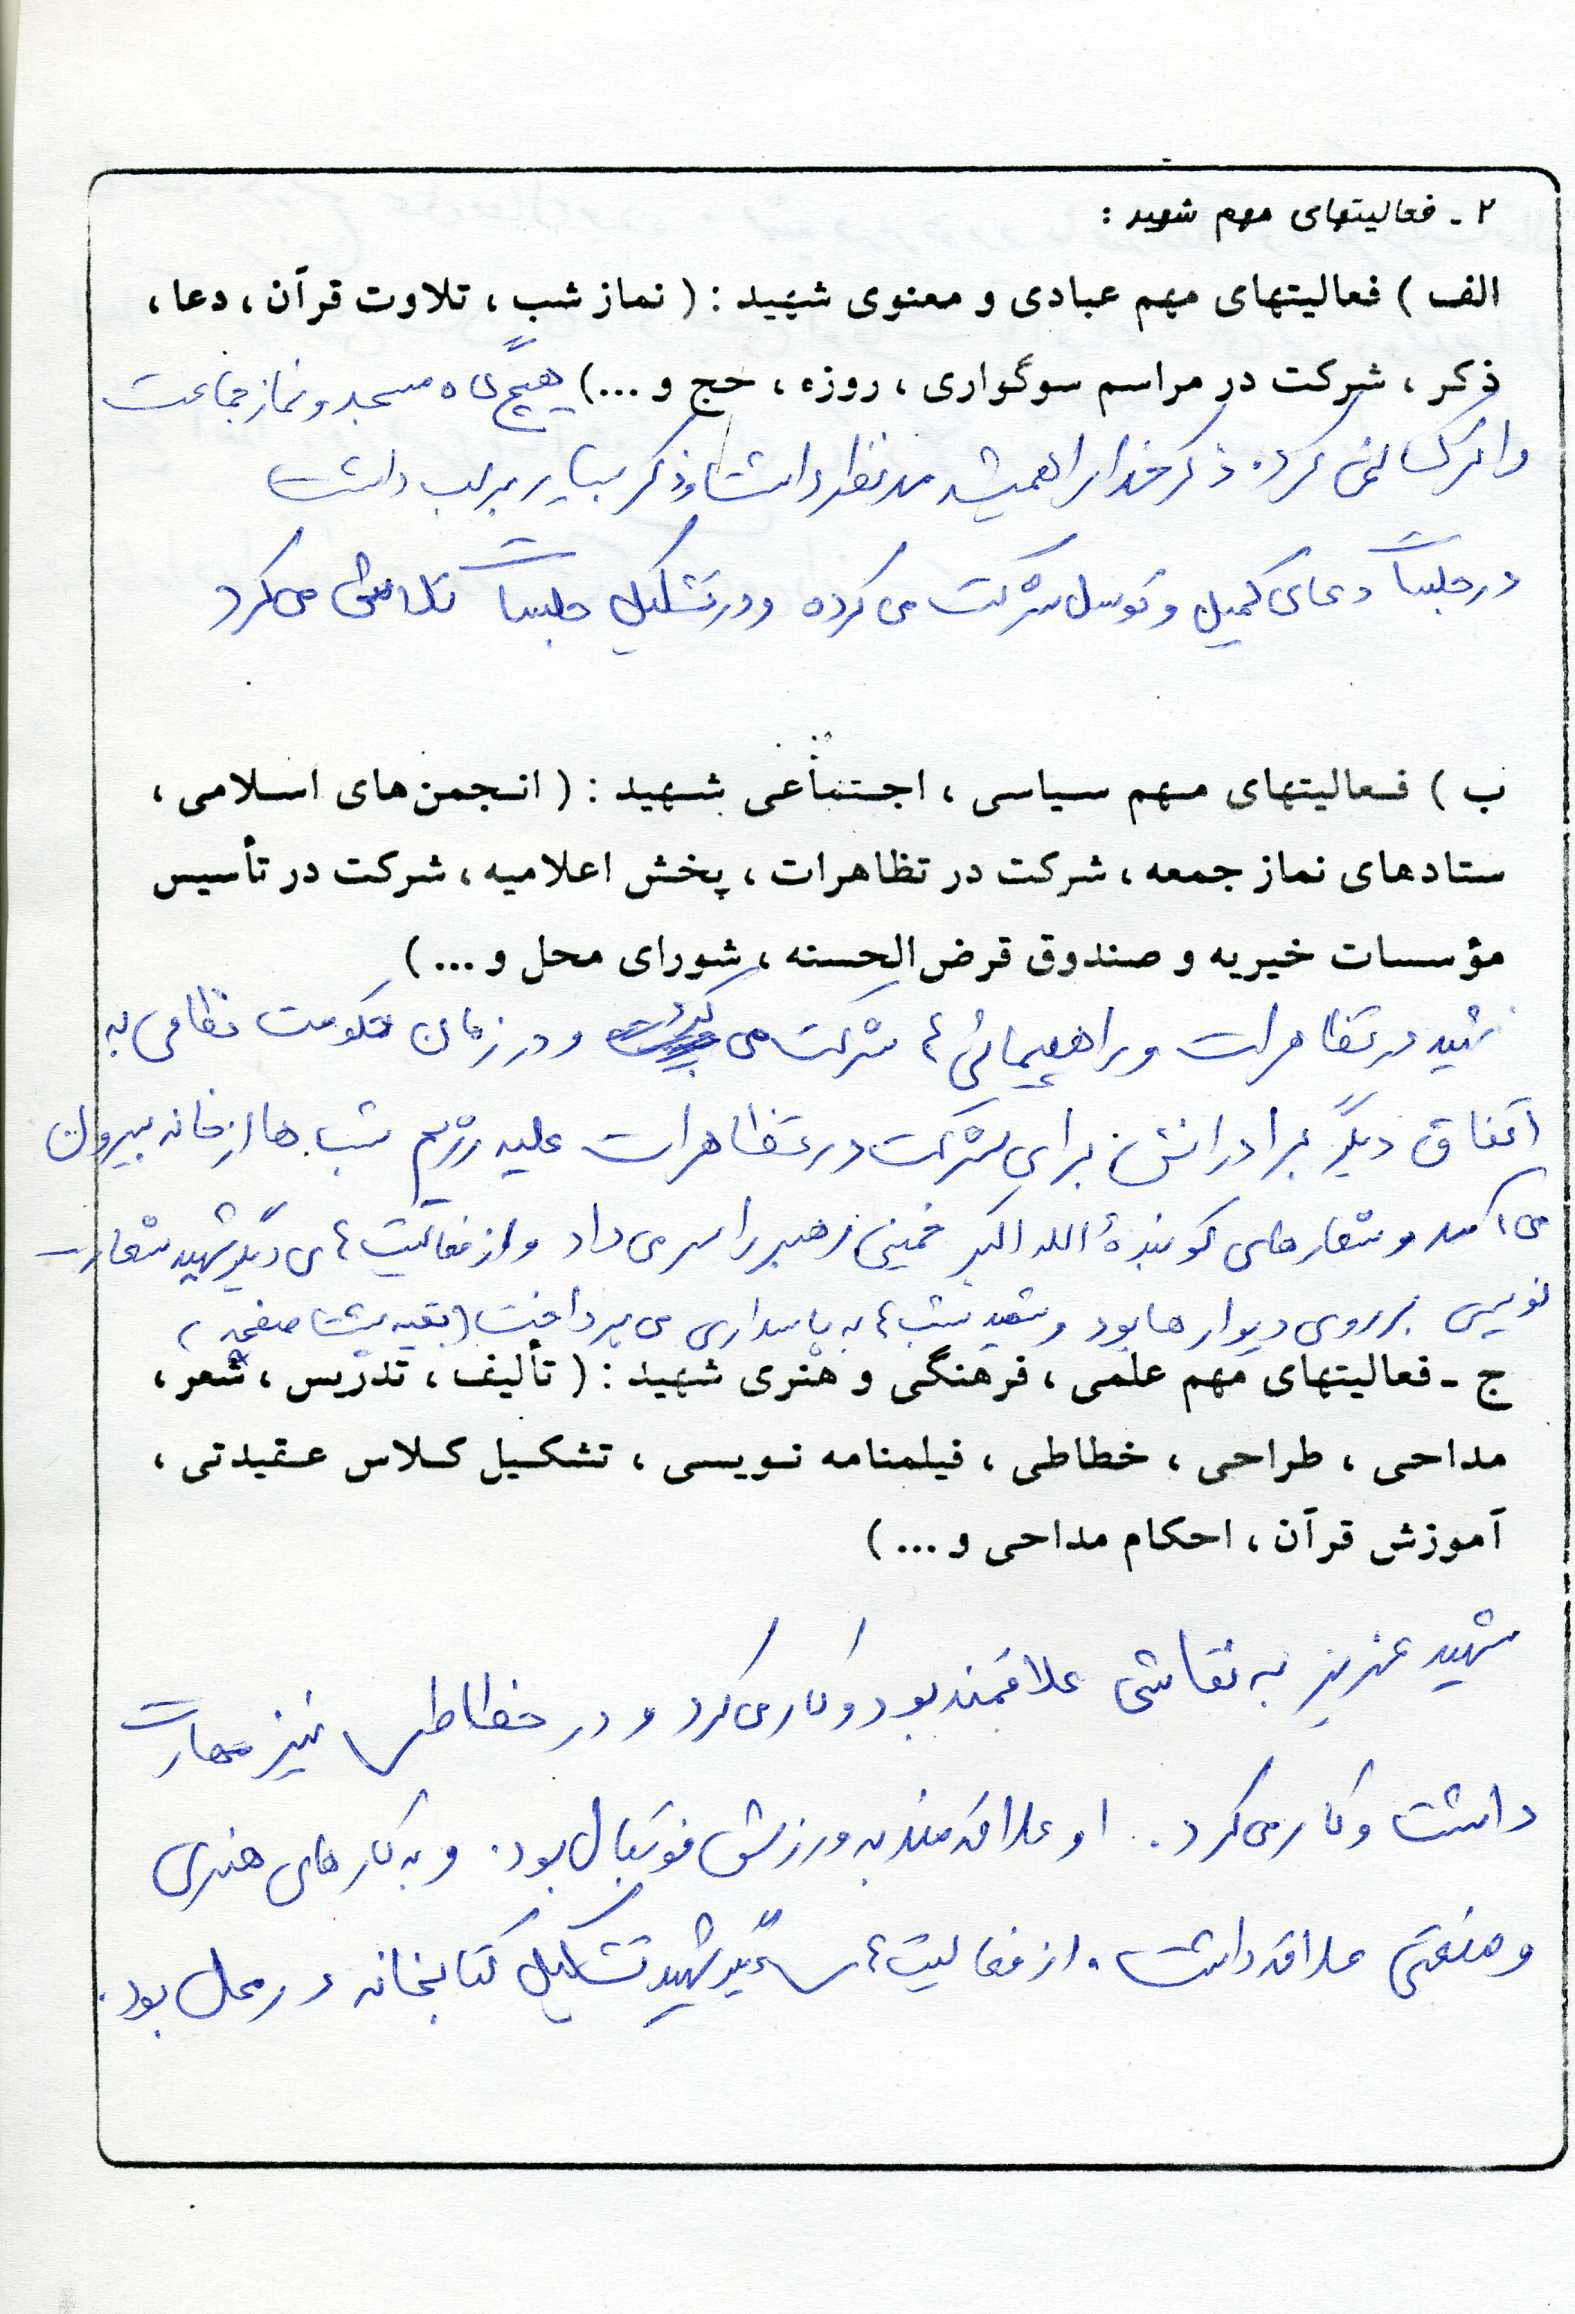 ۲ - فعالیتهای مهم شهید :
الف ) فعالیتهای مهم عبادی و معنوی شهید : ( نماز شب ، تلاوت قرآن ، دعا ،
ذکر ، شرکت در مراسم سوگواری ، روزه ، حج و ... ) هیچگاه مسجد و نماز جماعت
را ترک نمی کرد. ذکر خدا را همیشه مد نظر داشت و ذکر بسیار بر لب داشت
در جلسات دعای کمیل و توسل شرکت می کرده و در تشکیل جلسات تلاش می کرد
ب ) فعالیتهای مهم سیاسی ، اجتماعی شهید : ( انجمن‌های اسلامی ،
ستادهای نماز جمعه ، شرکت در تظاهرات ، پخش اعلامیه ، شرکت در تأسیس
مؤسسات خیریه و صندوق قرض الحسنه ، شورای محل و ... )
شهید در تظاهرات و راهپیمائی ها شرکت می کرد و در زمان حکومت نظامی به
اتفاق دیگر برادرانش برای شرکت در تظاهرات علیه رژیم شب ها از خانه بیرون
می آمد و شعارهای کوبندهٔ الله اکبر خمینی رهبر را سر می داد و از فعالیت های دیگر شهید شعار
نویسی بر روی دیوارها بود و شهید شب ها به پاسداری می پرداخت (بقیه پشت صفحه)
ج - فعالیتهای مهم علمی ، فرهنگی و هنری شهید : ( تألیف ، تدریس ، شعر ،
مداحی ، طراحی ، خطاطی ، فیلمنامه نویسی ، تشکیل کلاس عقیدتی ،
آموزش قرآن ، احکام مداحی و ... )
شهید عزیز به نقاشی علاقمند بود و کار می کرد و در خطاطی نیز مهارت
داشت و کار می کرد. او علاقه مند به ورزش فوتبال بود. و به کارهای هنری
و صنعتی علاقه داشت. از فعالیت های دیگر شهید تشکیل کتابخانه در محل بود.